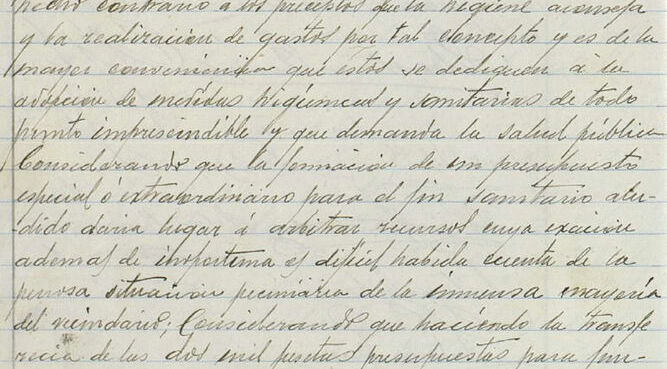 hecho contrario a los preceptos que la higiene aconseja
y la realización de gastos por tal concepto y es de la
mayor conveniencia que estos se dediquen á la
adopción de medidas higiénicas y sanitarias de todo
punto imprescindible y que demanda la salud pública
Considerando que la formación de un presupuesto
especial ó extraordinario para el fin sanitario alu-
-dido daria lugar á arbitrar recursos cuya exacción
ademas de inoportuna es dificil habida cuenta de la
penosa situación pecuniaria de la inmensa mayoría
del vecindario; Considerando que haciendo la transfe
recia de las dos mil pesetas presupuestas para fun-